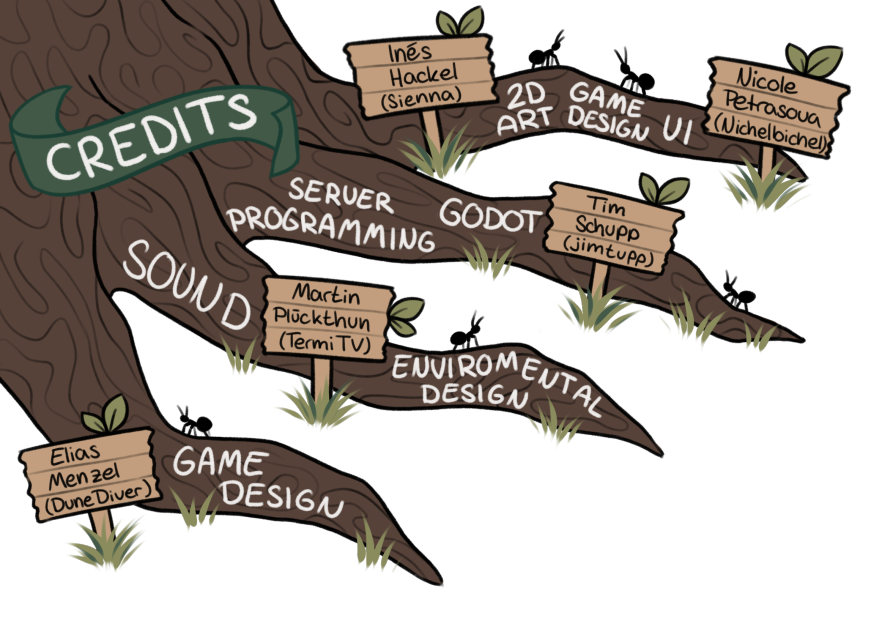 CREDITS
Inés
Hackel
(Sienna)
2D
ART
GAME
DESIGN
UI
Nicole
Petrasova
(Nichelbichel)
SERVER
PROGRAMMING
GODOT
Tim
Schupp
(jimtupp)
SOUND
Martin
Plückthun
(TermiTV)
ENVIROMENTAL
DESIGN
Elias
Menzel
(DuneDiver)
GAME
DESIGN